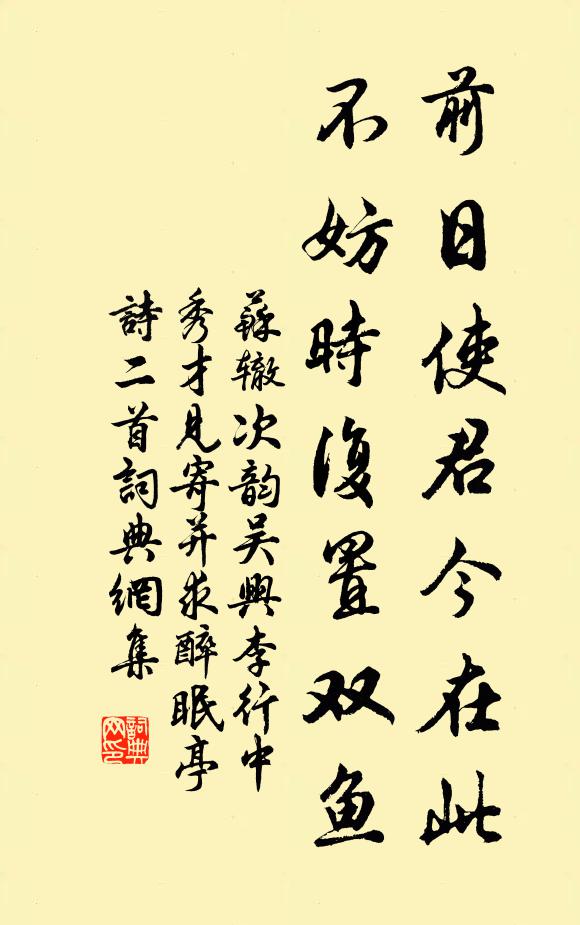 前日使君今在此
不妨時復置双鱼
蘇辙次韵吴興李行中
秀才見寄并求醉眠亭
詩二首詞典網集
詞典
网印